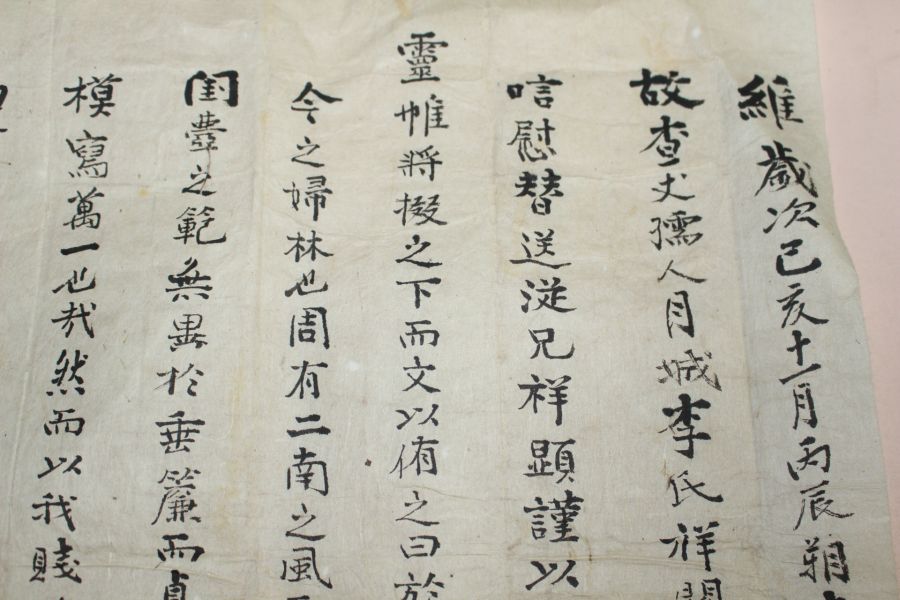 維歲次己亥十一月丙辰朔
故查丈孺人月城李氏祥
唁慰替送從兄祥顯謹以
靈帷將掇之下而文以侑之曰於
今之婦林也周有二南之風
閨之範無異於垂簾而貞
模寫萬一也哉然而以我賤